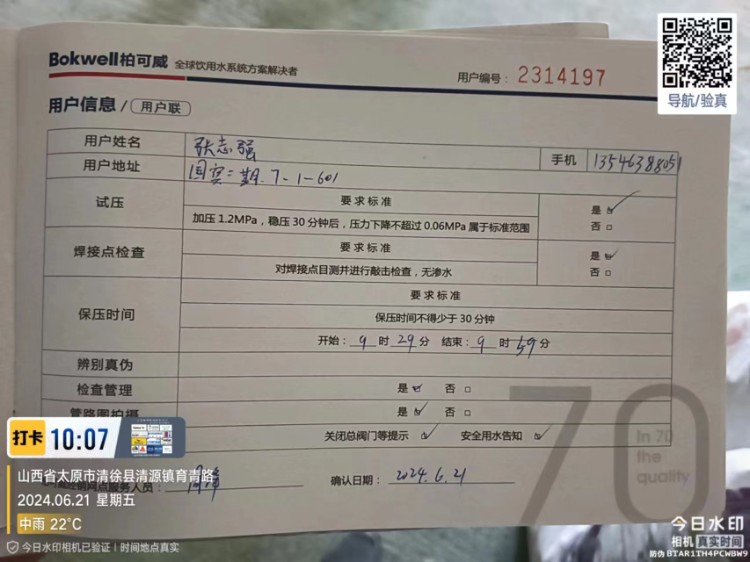 Bokwell柏可威 全球饮用水系统方案解决者
用户编号：2314197
导航/验真
用户信息/用户联
用户姓名 张志强 手机 13546388051
用户地址 国宾二期.7-1-601
试压 要求标准 是☑
加压1.2MPa，稳压30分钟后，压力下降不超过0.06MPa属于标准范围 否□
焊接点检查 要求标准 是☑
对焊接点目测并进行敲击检查，无渗水 否□
保压时间 要求标准
保压时间不得少于30分钟
开始：9时29分 结束：9时59分
辨别真伪
检查管理 是☑ 否□
管路图拍摄 是☑ 否□
关闭总阀门等提示☑ 安全用水告知☑
服务人员：
确认日期：2024.6.21
70
In 70
the
quality
打卡 10:07
山西省太原市清徐县清源镇育青路
2024.06.21 星期五
中雨 22°C
今日水印相机已验证 | 时间地点真实
今日水印
相机 真实时间
防伪 BTAR1TH4PCWBW9